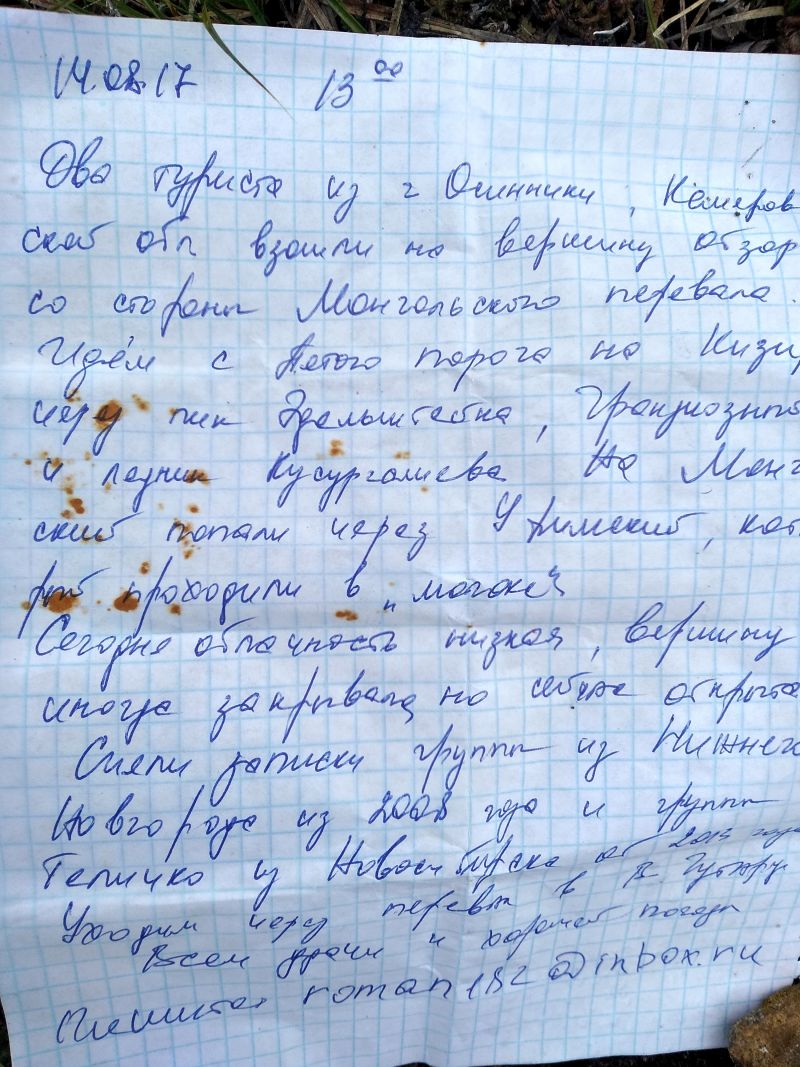 14.08.17 13 00
Два туриста из г Осинники, Кемеров
ской обл взошли на вершину обзор
со стороны Монгольского перевала.
Идём с Пятого порога на Кизи
через пик Эдельштейна, Грандиозный
и ледник Кусургашева На Монг
ский попали через Утинский, кото
рый проходили в „молоке“
Сегодня облачность низкая, вершину
иногда закрывала, но сейчас открыта
Сняли записки группы из Нижнего
Новгорода из 2008 года и группы
Теличко из Новосибирска от 2015 года
Уходим через перевал в
Всем удачи и хорошей погоды
Пишите roman182@inbox.ru